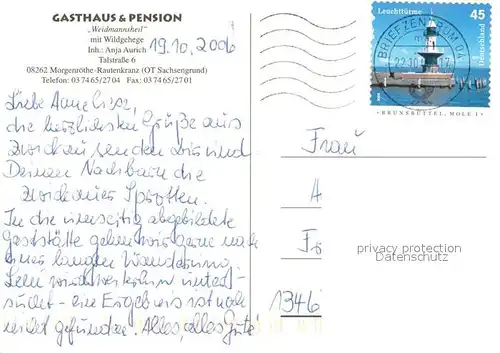 GASTHAUS & PENSION
„Weidmannsheil“
mit Wildgehege
Inh.: Anja Aurich
Talstraße 6
08262 Morgenröthe-Rautenkranz (OT Sachsengrund)
Telefon: 03 74 65/27 04 Fax: 03 74 65/27 01
19.10.2006
Leuchttürme 45
Deutschland
BRIEFZENTRUM 04
BRUNSBÜTTEL, MOLE 1
Liebe Anneliese,
die herzlichsten Grüße aus
Zwickau senden wir und
Deinen Nachbarn die
Zwickauer Sprotten.
In die umseitig abgebildete
Gaststätte gehen wir gerne nach
einer langen Wanderung.
wird weiterhin unter-
sucht - ein Ergebnis ist noch
nicht gefunden. Alles, alles Gute!
Frau
A
Fr
1346
privacy protection
Datenschutz